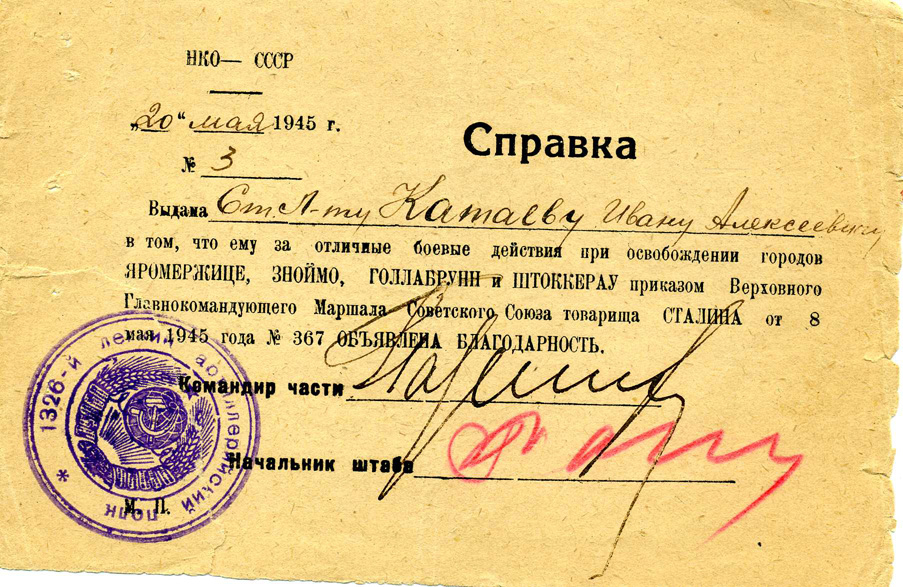 НКО— СССР
„20" мая 1945 г.
№ 3
Справка
Выдана Ст. Л-ту Катаеву Ивану Алексеевичу
в том, что ему за отличные боевые действия при освобождении городов
ЯРОМЕРЖИЦЕ, ЗНОЙМО, ГОЛЛАБРУНН и ШТОККЕРАУ приказом Верховного
Главнокомандующего Маршала Советского Союза товарища СТАЛИНА от 8
мая 1945 года № 367 ОБЪЯВЛЕНА БЛАГОДАРНОСТЬ.
Командир части
Начальник штаба
М. П.
1326-й легкий артиллерийский полк *